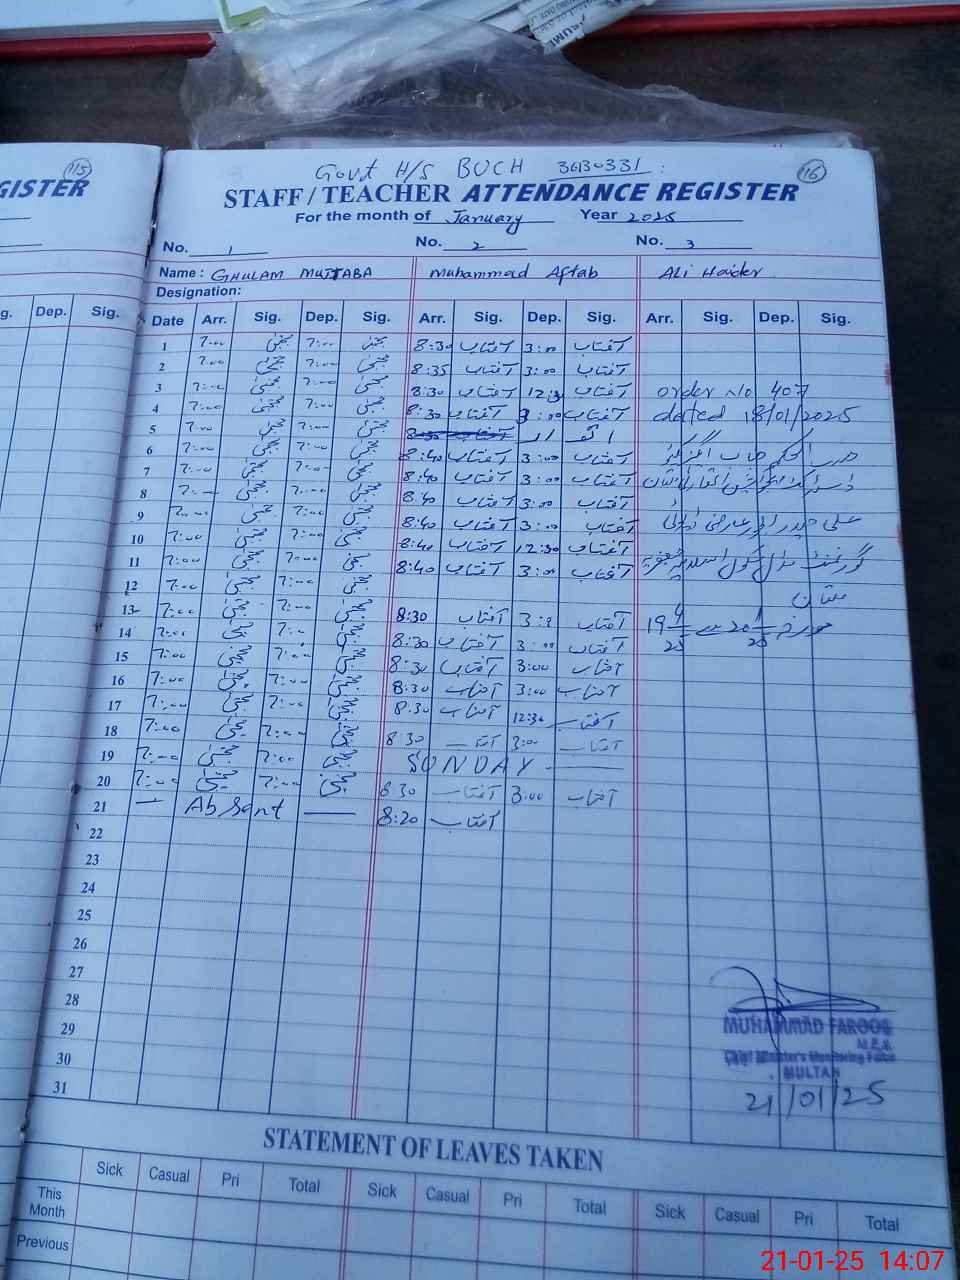 115
GISTER
16
Govt H/S BUCH 36130331
STAFF / TEACHER ATTENDANCE REGISTER
For the month of January Year 2025
No. 1 No. 2 No. 3
Name : GHULAM MUJTABA Muhammad Aftab Ali Haider
Designation:
g. Dep. Sig. Date Arr. Sig. Dep. Sig. Arr. Sig. Dep. Sig. Arr. Sig. Dep. Sig.
1 7:00 مجتبیٰ 7:00 مجتبیٰ 8:30 آفتاب 3:00 آفتاب
2 7:00 مجتبیٰ 7:00 مجتبیٰ 8:35 آفتاب 3:00 آفتاب
3 7:00 مجتبیٰ 7:00 مجتبیٰ 8:30 آفتاب 12:30 آفتاب order No 407
4 7:00 مجتبیٰ 7:00 مجتبیٰ 8:30 آفتاب 3:00 آفتاب dated 18/01/2025
5 7:00 مجتبیٰ 7:00 مجتبیٰ
6 7:00 مجتبیٰ 7:00 مجتبیٰ 8:40 آفتاب 3:00 آفتاب
7 7:00 مجتبیٰ 7:00 مجتبیٰ 8:40 آفتاب 3:00 آفتاب
8 7:00 مجتبیٰ 7:00 مجتبیٰ 8:40 آفتاب 3:00 آفتاب
9 7:00 مجتبیٰ 7:00 مجتبیٰ 8:40 آفتاب 3:00 آفتاب علی حیدر
10 7:00 مجتبیٰ 7:00 مجتبیٰ 8:40 آفتاب 12:30 آفتاب
11 7:00 مجتبیٰ 7:00 مجتبیٰ 8:40 آفتاب 3:00 آفتاب گورنمنٹ
12 7:00 مجتبیٰ 7:00 مجتبیٰ ملتان
13 7:00 مجتبیٰ 7:00 مجتبیٰ 8:30 آفتاب آفتاب
14 7:00 مجتبیٰ 7:00 مجتبیٰ 8:30 آفتاب 3:00 آفتاب
15 7:00 مجتبیٰ 7:00 مجتبیٰ 8:30 آفتاب 3:00 آفتاب
16 7:00 مجتبیٰ 7:00 مجتبیٰ 8:30 آفتاب 3:00 آفتاب
17 7:00 مجتبیٰ 7:00 مجتبیٰ 8:30 آفتاب 12:30 آفتاب
18 7:00 مجتبیٰ 7:00 مجتبیٰ 8:30 آفتاب 3:00 آفتاب
19 7:00 مجتبیٰ 7:00 مجتبیٰ SUNDAY
20 7:00 مجتبیٰ 7:00 مجتبیٰ 8:30 آفتاب 3:00 آفتاب
21 — Absent — 8:20 آفتاب
22
23
24
25
26
27
28
29
30
31
MUHAMMAD FAROOQ
M.E.A
Chief Minister's Monitoring Force
MULTAN
21/01/25
STATEMENT OF LEAVES TAKEN
Sick Casual Pri Total Sick Casual Pri Total Sick Casual Pri Total
This Month
Previous
21-01-25 14:07